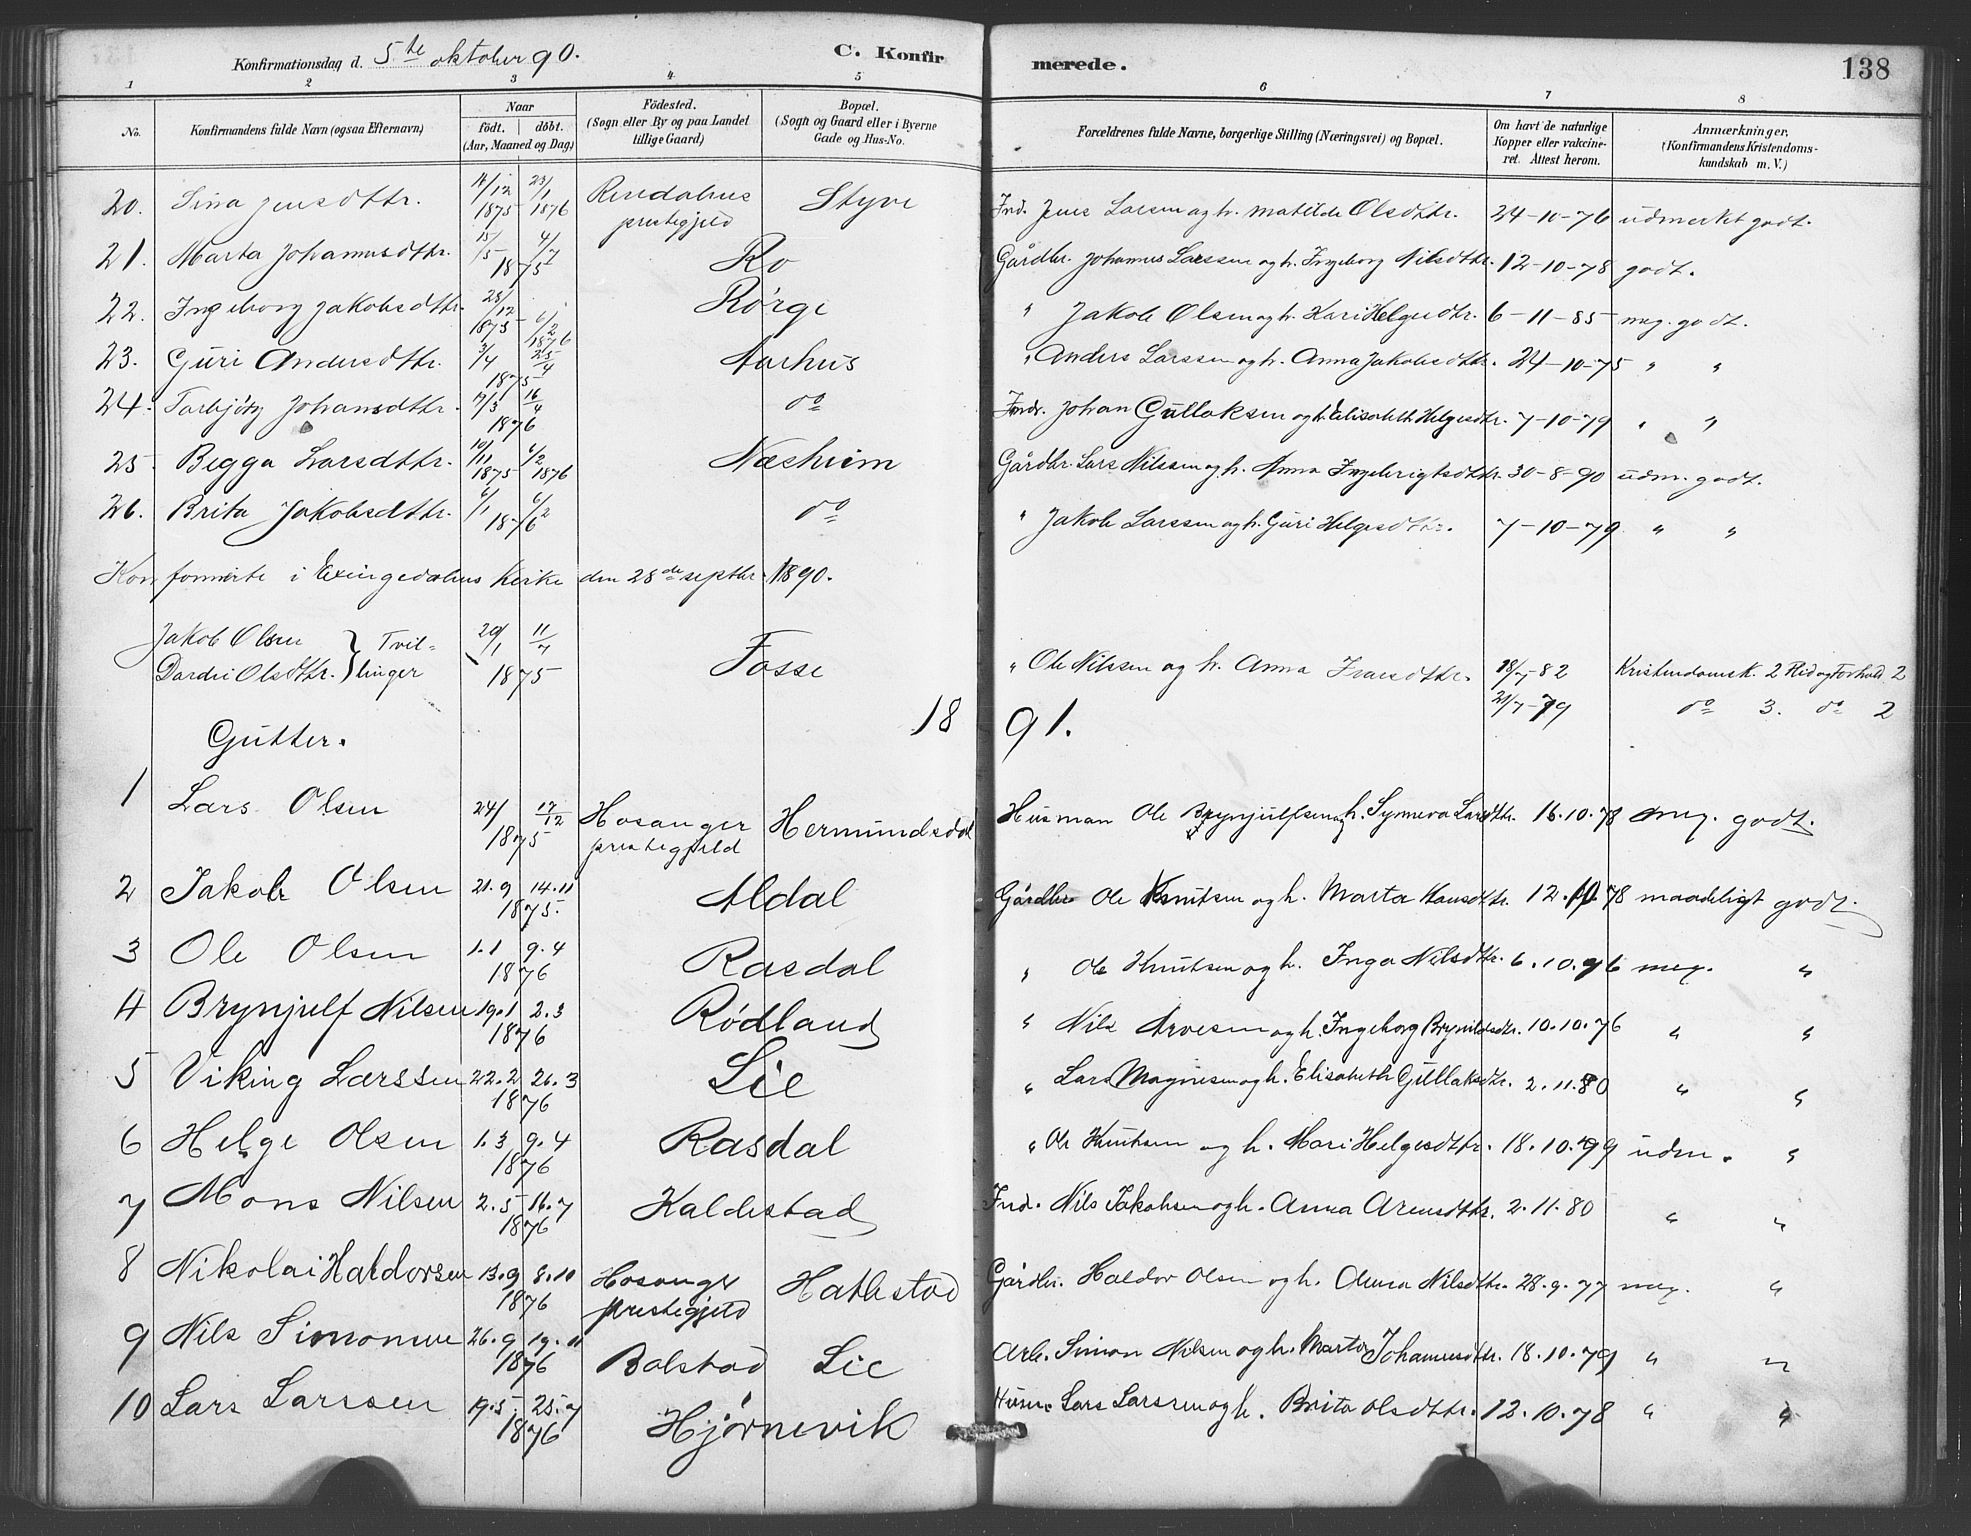 Konfirmationsdag d. 5te oktober 90. C. Konfirmerede. 138
1 2 3 4 5 6 7 8
No. Konfirmandens fulde Navn (ogsaa Efternavn) Naar födt. döbt. (Aar, Maaned og Dag) Födested. (Sogn eller By og paa Landet tillige Gaard) Bopæl. (Sogn og Gaard eller i Byerne Gade og Hus-No. Forældrenes fulde Navne, borgerlige Stilling (Næringsvei) og Bopæl. Om havt de naturlige Kopper eller vakcineret. Attest herom. Anmærkninger. (Konfirmandens Kristendomskundskab m. V.)
20. Sina Jensdttr. 14/12 1875 23/1 1876 præstegjeld Styve Ind. Jens Larsen og h. Matilde Olsdttr. 24-10-76 udmerket godt.
21. Marta Johannesdttr. 15/5 4/7 1875 Ro Gårdbr. Johannes Larssen og h. Ingeborg Nilsdttr. 12-10-78 godt.
22. Ingeborg Jakobsdttr. 28/12 1875 6/2 1876 Rørge " Jakob Olsen og h. Kari Helgesdtr. 6-11-85 meg. godt.
23. Guri Andersdttr. 3/4 25/4 1875 Aarhus " Anders Larssen og h. Anna Jakobsdttr. 24-10-75 " "
24. Torbjørg Johansdttr. 17/3 16/4 1876 do Indr. Johan Gullaksen og h. Elisabeth Helgesdtr. 7-10-79 " "
25. Begga Larsdttr. 10/11 1875 6/2 1876 Næsheim Gårdbr. Lars Nilssen og h. Anna Ingebrigtsdttr. 30-8-90 udm. godt.
26. Brita Jakobsdttr. 6/1 6/2 1876 do " Jakob Larssen og h. Guri Helgesdttr. 7-10-79 " "
Konformerte i Exingedalens Kirke den 28de septbr. 1890.
Jakob Olsen } Tvil- 20/1 11/7
Dordei Olsdttr. } linger 1875 Fosse " Ole Nilssen og h. Anna Ivarsdttr. 18/7-82 Kristendomsk. 2 Flid og Forhold 2
21/7-79 do 3. do 2
Gutter. 1891.
1 Lars Olsen 24/ 17/12 1875 Hosanger prestegjeld Hermundsdal Husman Ole Brynjulfsen og h. Synneva Larsdttr. 16.10.78 meg. godt.
2 Jakob Olsen 21.9 14.11 1875. Aldal Gårdbr. Ole Knutsen og h. Marta Hansdttr. 12.10.78 maadeligt godt.
3 Ole Olsen 1.1 9.4 1876 Rasdal " Ole Knutsen og h. Inga Nilsdttr. 6.10.76 meg. "
4 Brynjulf Nilsen 19.1 2.3 1876 Rødland " Nils Arvesen og h. Ingeborg Brynildsdtr. 10.10.76 " "
5 Viking Larssen 22.2 26.3 1876 Lie " Lars Magnesen og h. Elisabeth Gullaksdtr. 2.11.80 " "
6 Helge Olsen 1.3 9.4 1876 Rasdal " Ole Knutsen og h. Mari Helgesdttr. 18.10.79 udm. "
7 Mons Nilsen 2.5 16.7 1876 Kaldestad Ind. Nils Jakobsen og h. Anna Arensdttr. 2.11.80 " "
8 Nikolai Haldorsen 13.9 8.10 1876 Hosanger prestegjeld Hatlestad Gårdbr. Haldor Olsen og h. Nilsdttr. 28.9.77 meg. "
9 Nils Simonsen 26.9 19.11 1876 Bolstad Lie Arb. Simon Nilsen og h. Marta Johannesdttr. 18.10.79 " "
10 Lars Larssen 19.5 25.7 1876 Hjørnevik Husm. Lars Larssen og h. Brita Olsdttr. 12.10.78 " "